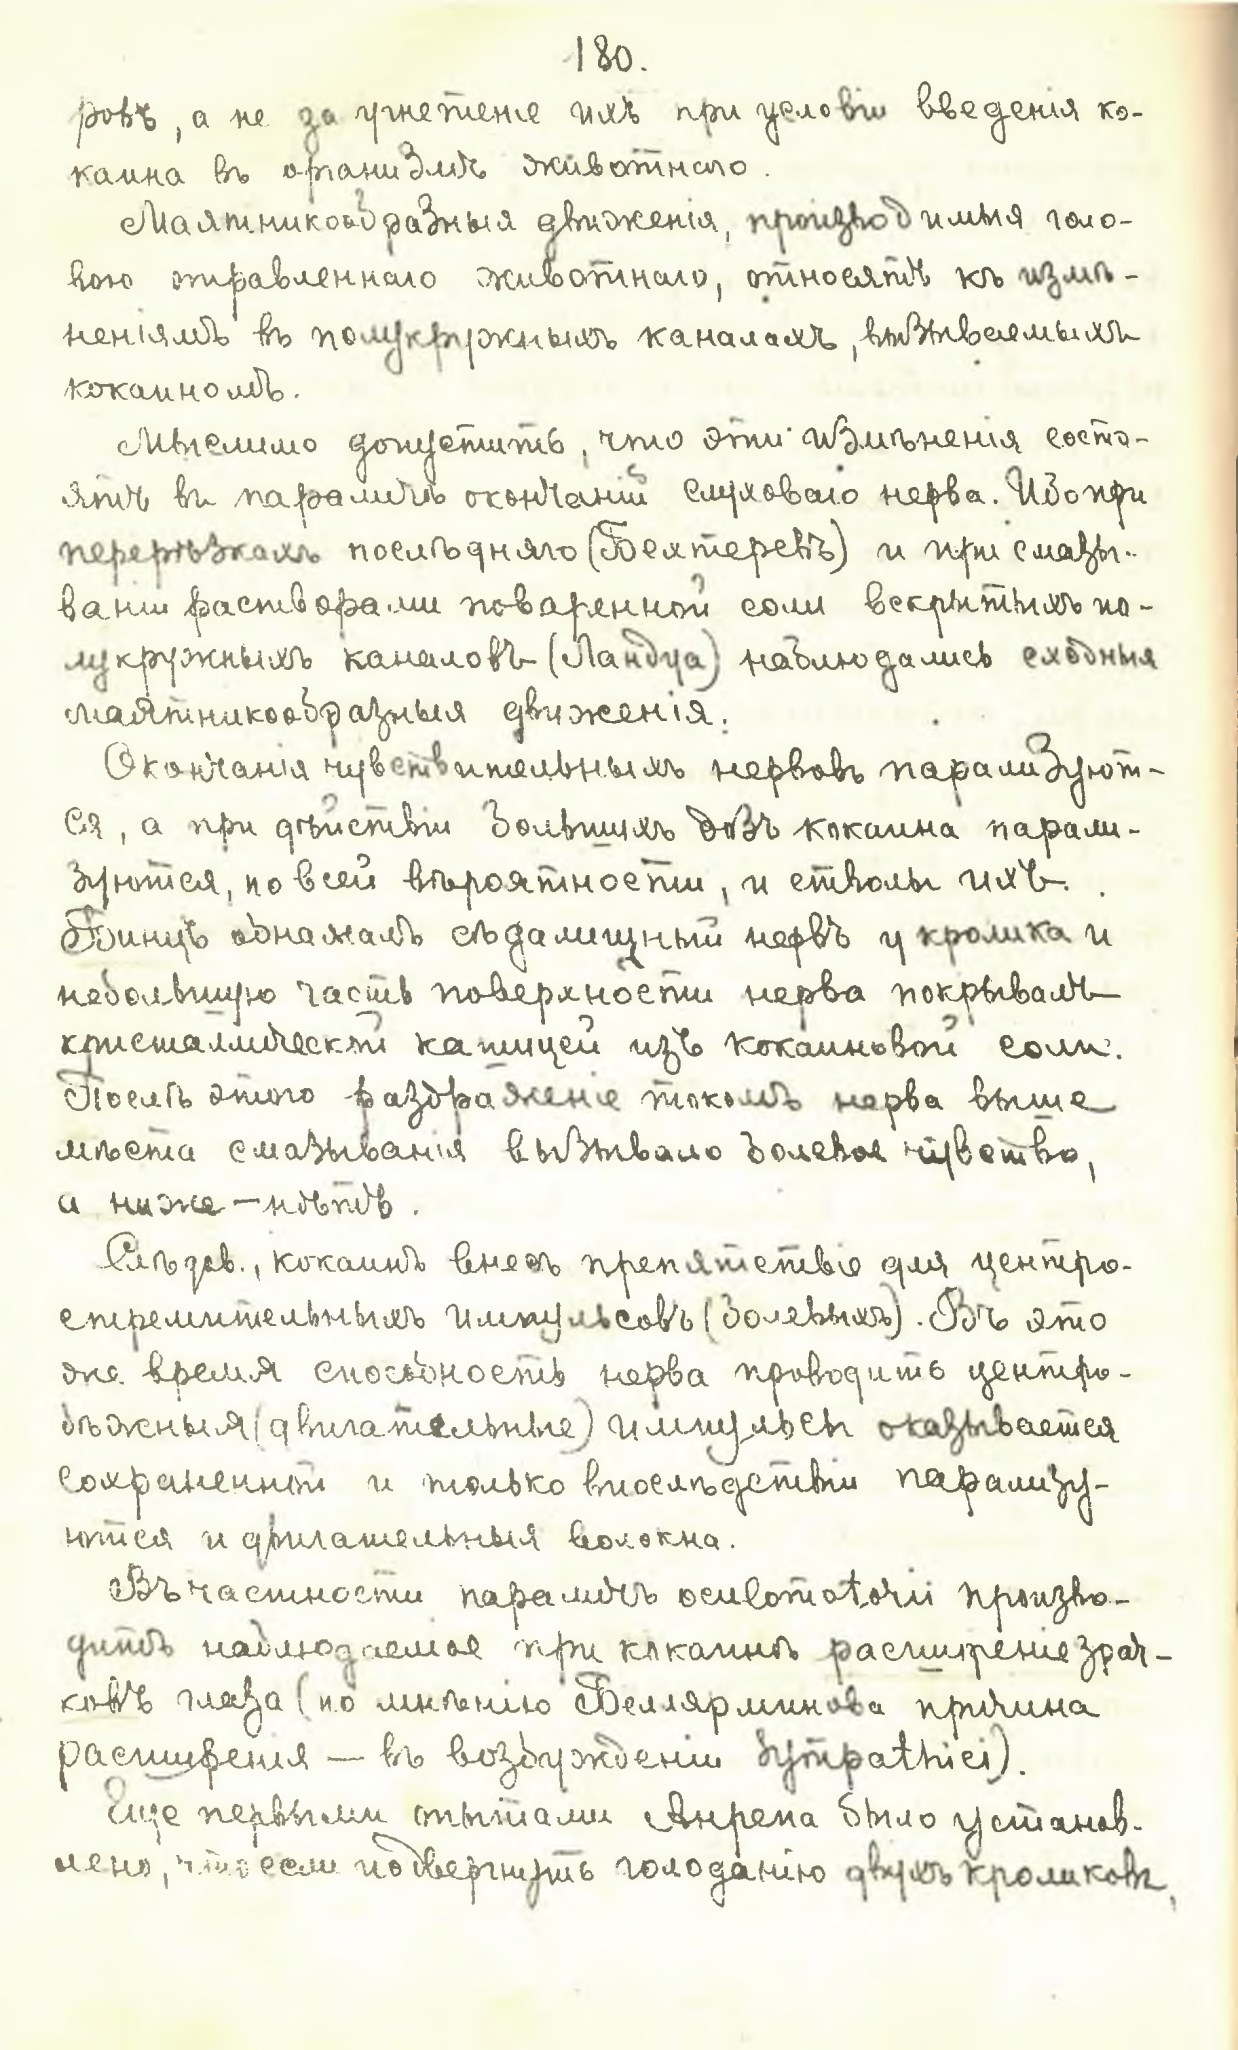 180.
ровъ, а не за угнетеніе ихъ при условіи введенія ко-
каина въ организмъ животнаго.
Маятникообразныя движенія, производимыя голо-
вою отравленнаго животнаго, относятъ къ измѣ-
неніямъ въ полукружныхъ каналахъ, вызываемыхъ
кокаиномъ.
Мыслимо допустить, что эти измѣненія состо-
ятъ въ параличѣ окончаній слуховаго нерва. Ибо при
перерѣзкахъ послѣдняго (Бехтеревъ) и при смазы-
ваніи растворами поваренной соли вскрытыхъ по-
лукружныхъ каналовъ (Ландуа) наблюдались сходныя
маятникообразныя движенія.
Окончанія чувствительныхъ нервовъ парализуют-
ся, а при дѣйствіи большихъ дозъ кокаина парали-
зуются, по всей вѣроятности, и стволы ихъ.
Бинцъ обнажалъ сѣдалищный нервъ у кролика и
небольшую часть поверхности нерва покрывалъ
кристаллической кашицей изъ кокаиновой соли.
Послѣ этого раздраженіе токомъ нерва выше
мѣста смазыванія вызывало болевое чувство,
а ниже — нѣтъ.
Слѣдов., кокаинъ внесъ препятствіе для центро-
стремительныхъ импульсовъ (болевыхъ). Въ это
же время способность нерва проводить центро-
бѣжныя (двигательные) импульсы оказывается
сохраненной и только впослѣдствіи парализу-
ются и двигательныя волокна.
Въ частности параличъ oculomotorii произво-
дитъ наблюдаемое при кокаинѣ расширеніе зрач-
ковъ глаза (по мнѣнію Беллярминова причина
расширенія — въ возбужденіи sympathici).
Еще первыми опытами Анрепа было установ-
лено, что если подвергнуть голоданію двухъ кроликовъ,